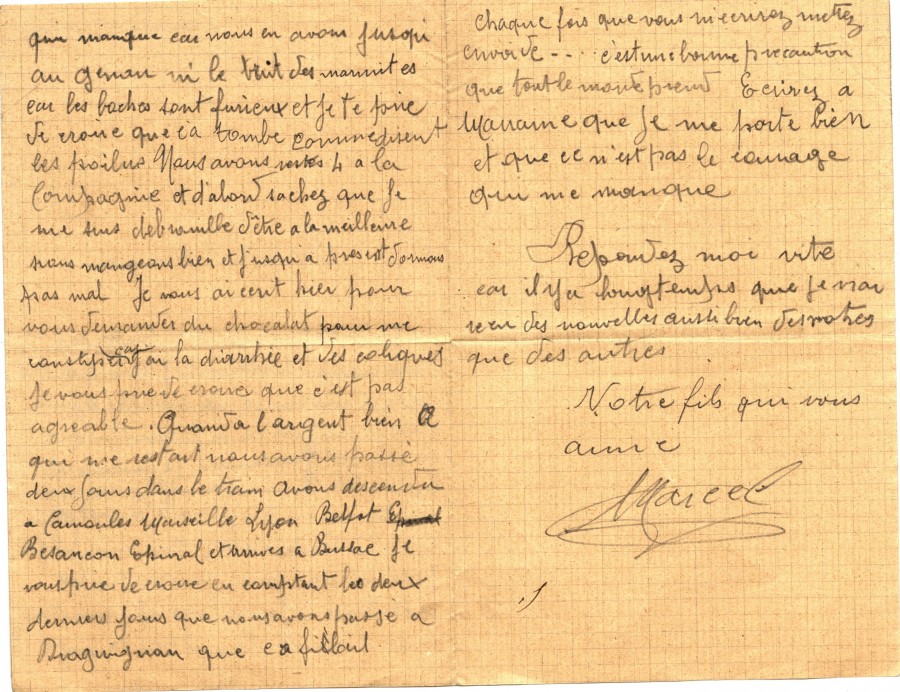 qui manque car nous en avons jusqu
au genou ni le bruit des marmites
car les boches sont furieux et je te prie
de croire que ca tombe
les poilus Nous avons 4 a la
Compagnie et d'abord sachez que Je
me suis debrouille d'être a la meilleure
nous mangeons bien et jusqu'a present dormons
pas mal Je vous ai ecrit hier pour
vous demander du chocolat pour me
constiper car j'ai la diarrhée et des coliques
Je vous prie de croire que c'est pas
agreable. Quand a l'argent bien
qui me restait nous avons passé
deux jours dans le train Avons descendu
a Carnoules Marseille Lyon Belfort Epinal
Besançon Epinal et arrives a Bussac Je
vous prie de croire en comptant les deux
derniers jours que nous avons passe a
Draguignan que ca filait
chaque fois que vous m'ecrirez mettez
envoi de -- .. c'est une bonne precaution
que tout le monde prend Ecrivez a
que Je me porte bien
et que ce n'est pas le courage
qui me manque
Repondez moi vite
car il y a longtemps que Je n'ai
recu des nouvelles aussi bien des votres
que des autres
Votre fils qui vous
aime
Marcel